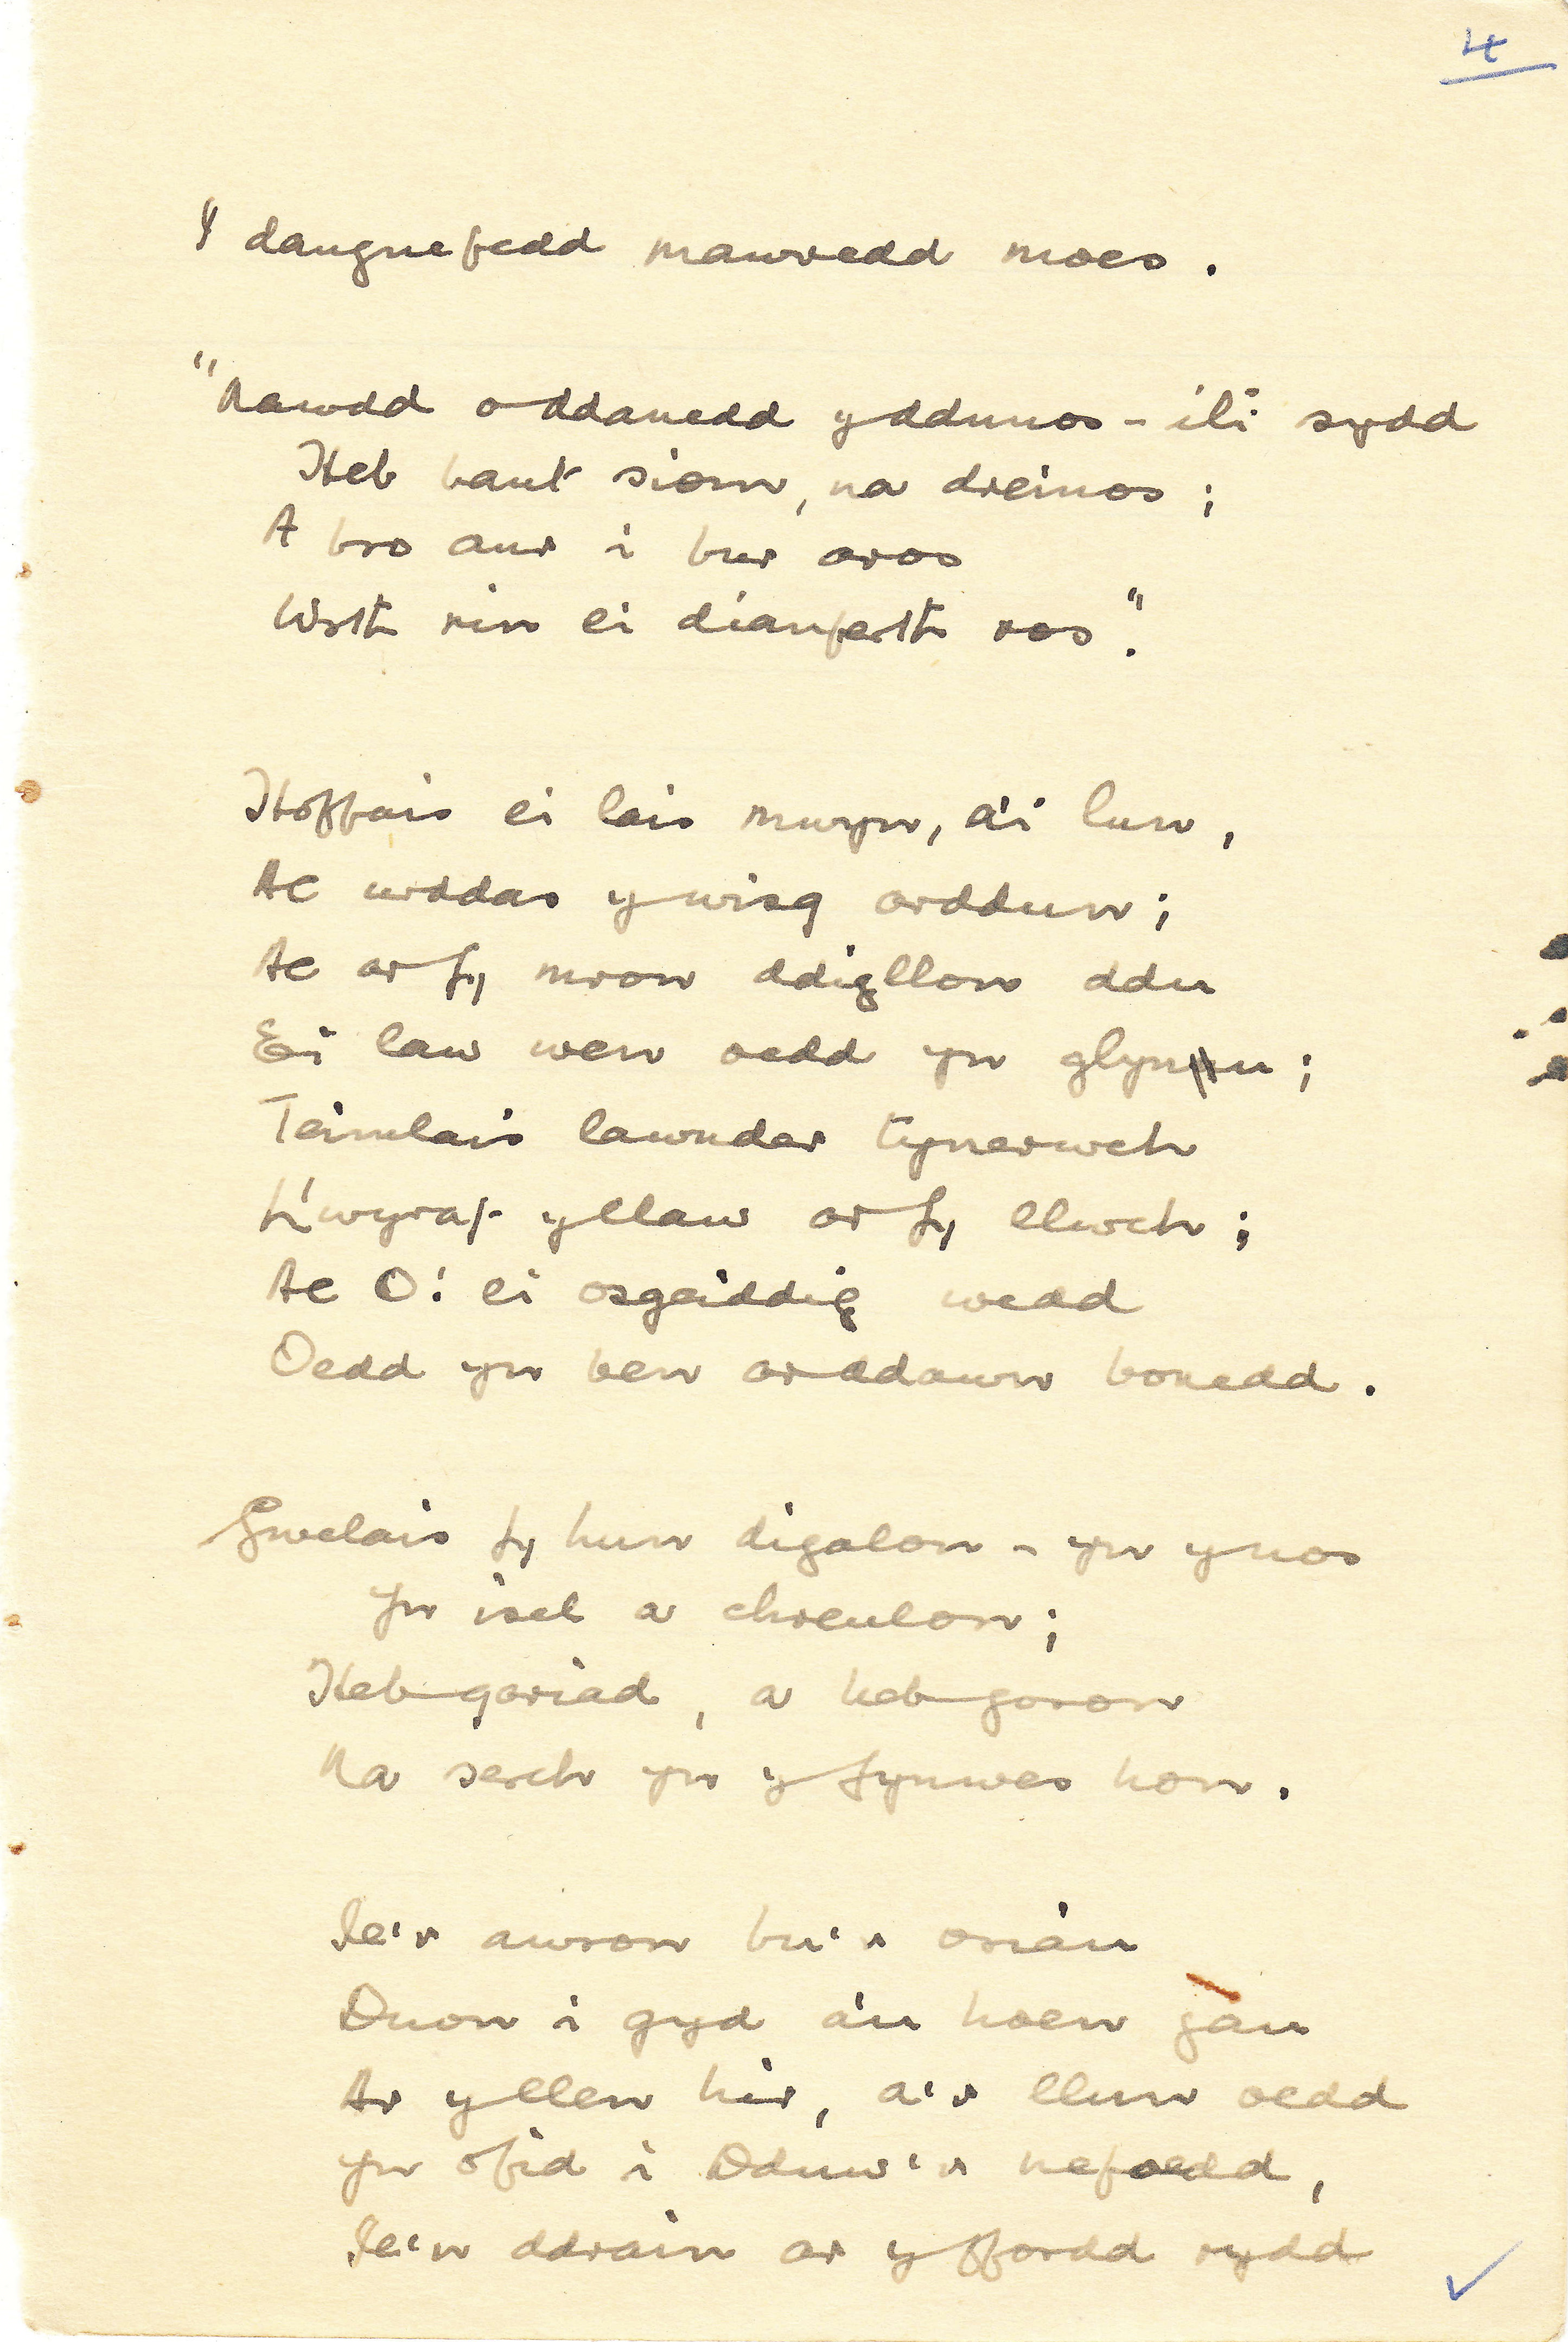 4
Y dangnefedd mawredd moes.
"Nawdd oddanedd y ddunos – iti sydd
Heb bant siom, na dreinos;
A bro aur i bur aros
Wrth rin ei dianferth ros".
Hoffais ei lais mwyn, a'i lun,
Ac urddas y wisg orddun;
Ac ar fy mron ddigllon ddu
Ei law wen oedd yn glynu;
Teimlais lawnder tynerwch
H'wyraf y llaw ar fy llwch;
Ac O! ei osgeiddig wedd
Oedd yn ben ar ddawn bonedd.
Gwelais fy hun digalon – yn y nos
Yn isel a chreulon;
Heb gariad, a heb goron
Na serch yn y fynwes hon.
Ie'r awron bu'r oriau
Duon i gyd a'u hoen gau
Ar y llen hir, a'r llun oedd
Yn ofid i Dduw'r nefoedd,
Ie'n ddrain ar y ffordd rydd